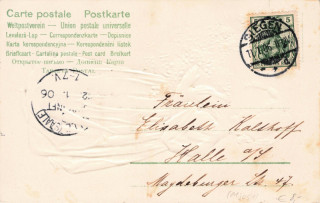 Carte postale Postkarte
Weltpostverein — Union postale universelle
Levelező-Lap — Correspondenzkarte — Dopisnice
Karta korespondencyjna — Korespondenční lístek
Briefkaart — Cartolina postale — Post card — Brefkort
Открытое письмо
SIEGEN
5
7-8V
2. 1. 06
(SAALE)
Fräulein
Elisabeth Kalthoff
Halle a/S
Magdeburger Str 47